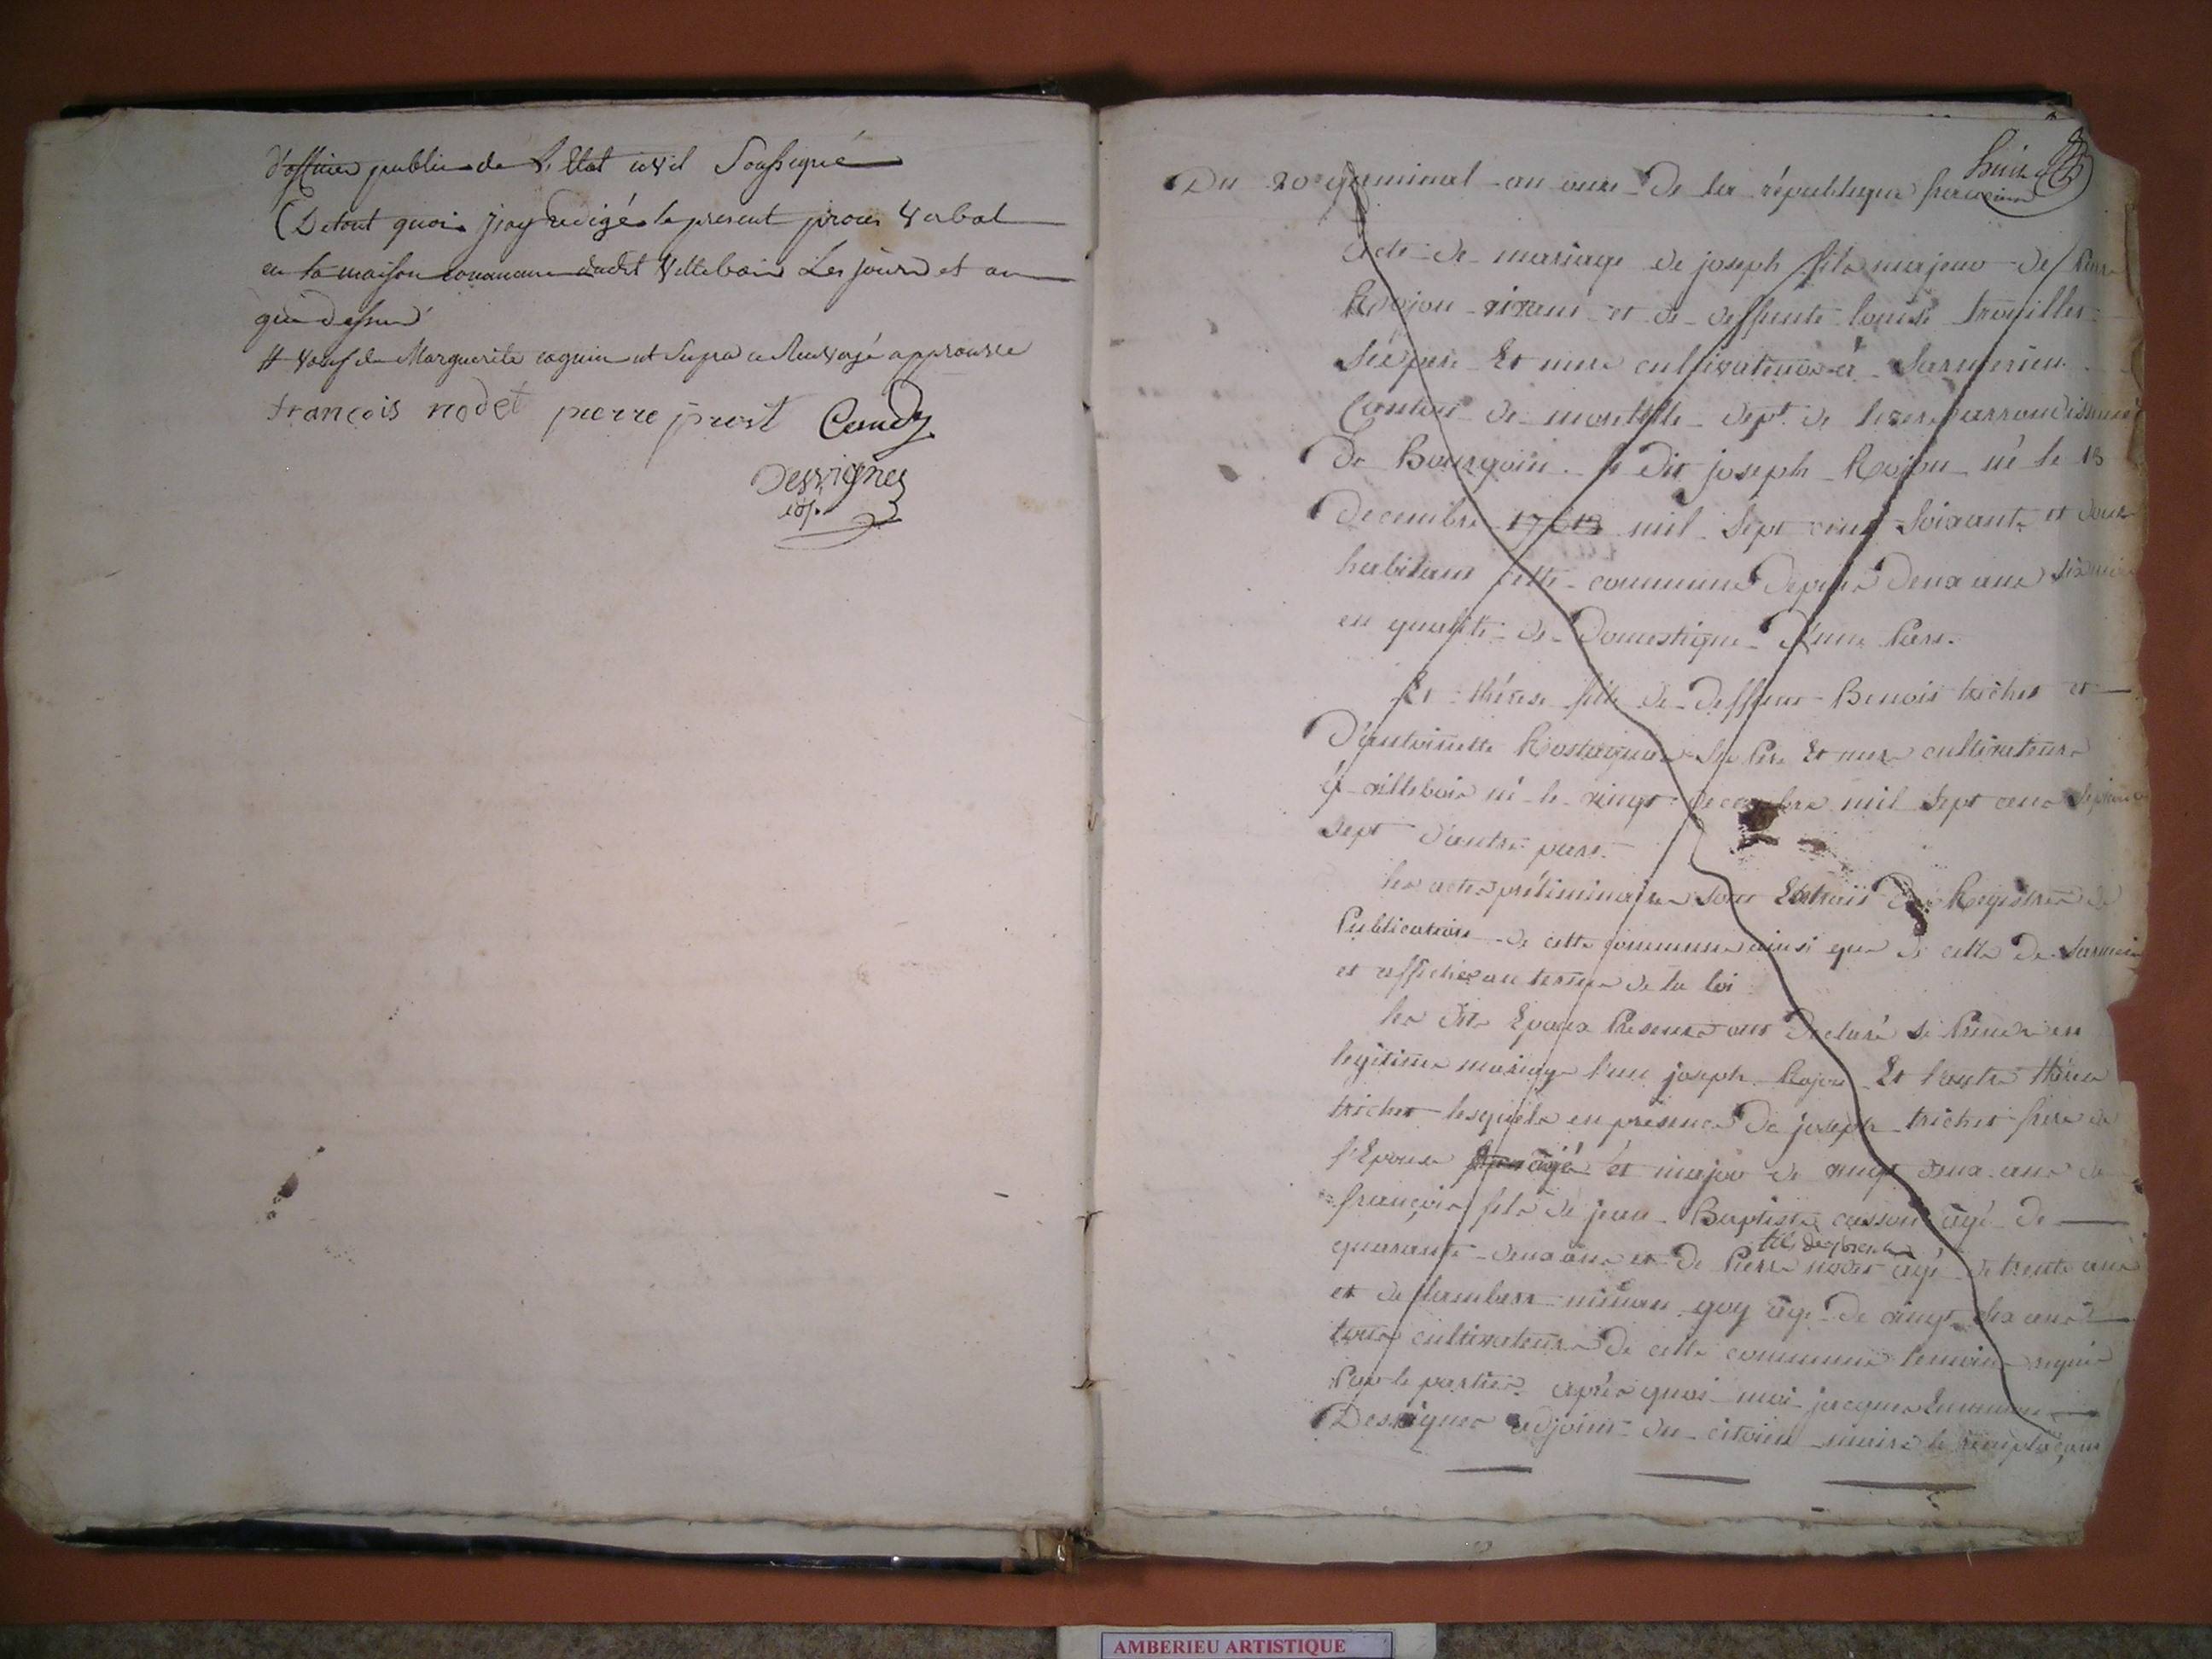 d'officier public de L'Etat civil Soussigné
De tout quoi j'ay redigé le present proces verbal
en la maison commune dudit Villebois Les jour et an
que dessus
# veuf de Marguerite coguin ut supra ce Renvoyé approuvee
françois nodet pierre prost
Desvignes
adj.
huit
Du 20 germinal an onze de la république francaise
acte de mariage de joseph fils majeur de Pierre
Rojon vivant et de deffunte louise trouillet
ses pere Et mere cultivateurs à Sarmerieu
Canton de morestelle dept. de lisere arrondissement
De Bourgoin. le dit joseph Rojon né le 13
Decembre mil sept cent soixante et douze
habitant cette commune depuis deux ans six mois
en qualité de Domestique d'une Part.
Et thérese fille de deffunt Benoit trichet et
D'antoinette Rostaignat ses Pere Et mere cultivateurs
à villebois né le vingt decembre mil sept cent septante
sept d'autre part.
les actes préliminaires sont Extrait des Registres de
Publication de cette commune ainsi que de celle de
et affiches au terme de la loi
les dits Epoux Presents ont Declaré se Prendre en
legitime mariage l'un joseph Rojon Et l'autre thérese
trichet lesquels en présence de joseph trichet frere de
l'Epouse agé et major de vingt deux ans de
françois fils de jean Baptiste cusson agé de
quarante deux ans et de Pierre fils de joseph nodet agé de trente ans
et de lambert guy agé de vingt six ans
tous cultivateurs de cette commune temoins requis
Par le parties. après quoi moi jacques
Desvignes adjoint du citoien maire le remplaçant
AMBERIEU ARTISTIQUE